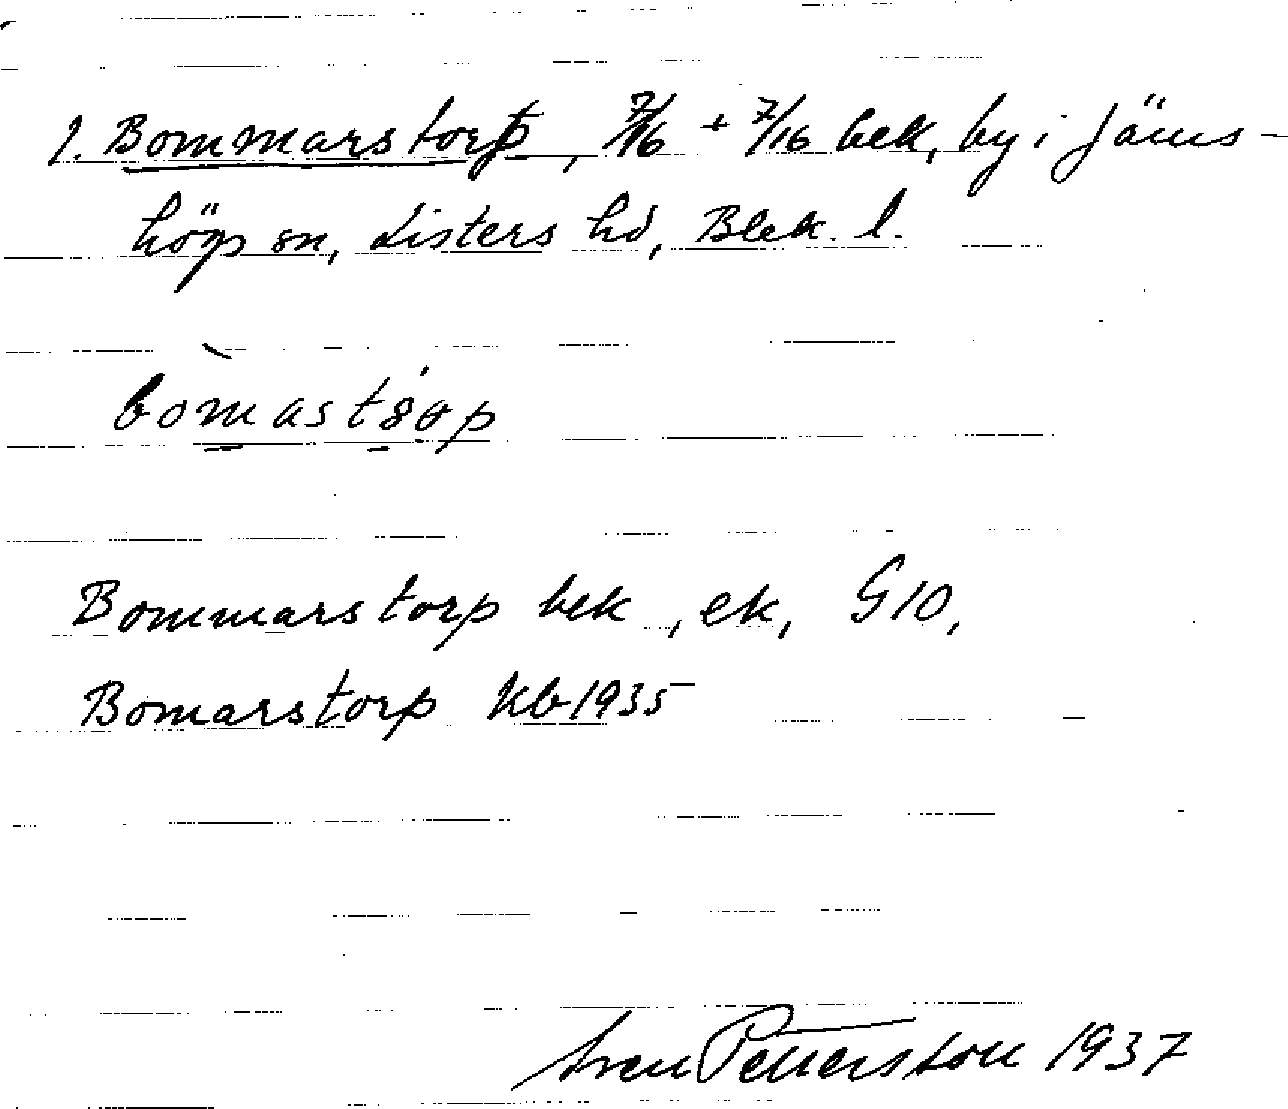 1. Bommarstorp, 7/16 + 7/16 bek, by i Jäms-
högs sn, Listers hd, Blek. l.
bòmastårp
Bommarstorp bek, ek, G10,
Bomarstorp kb 1935
Sven Pettersson 1937